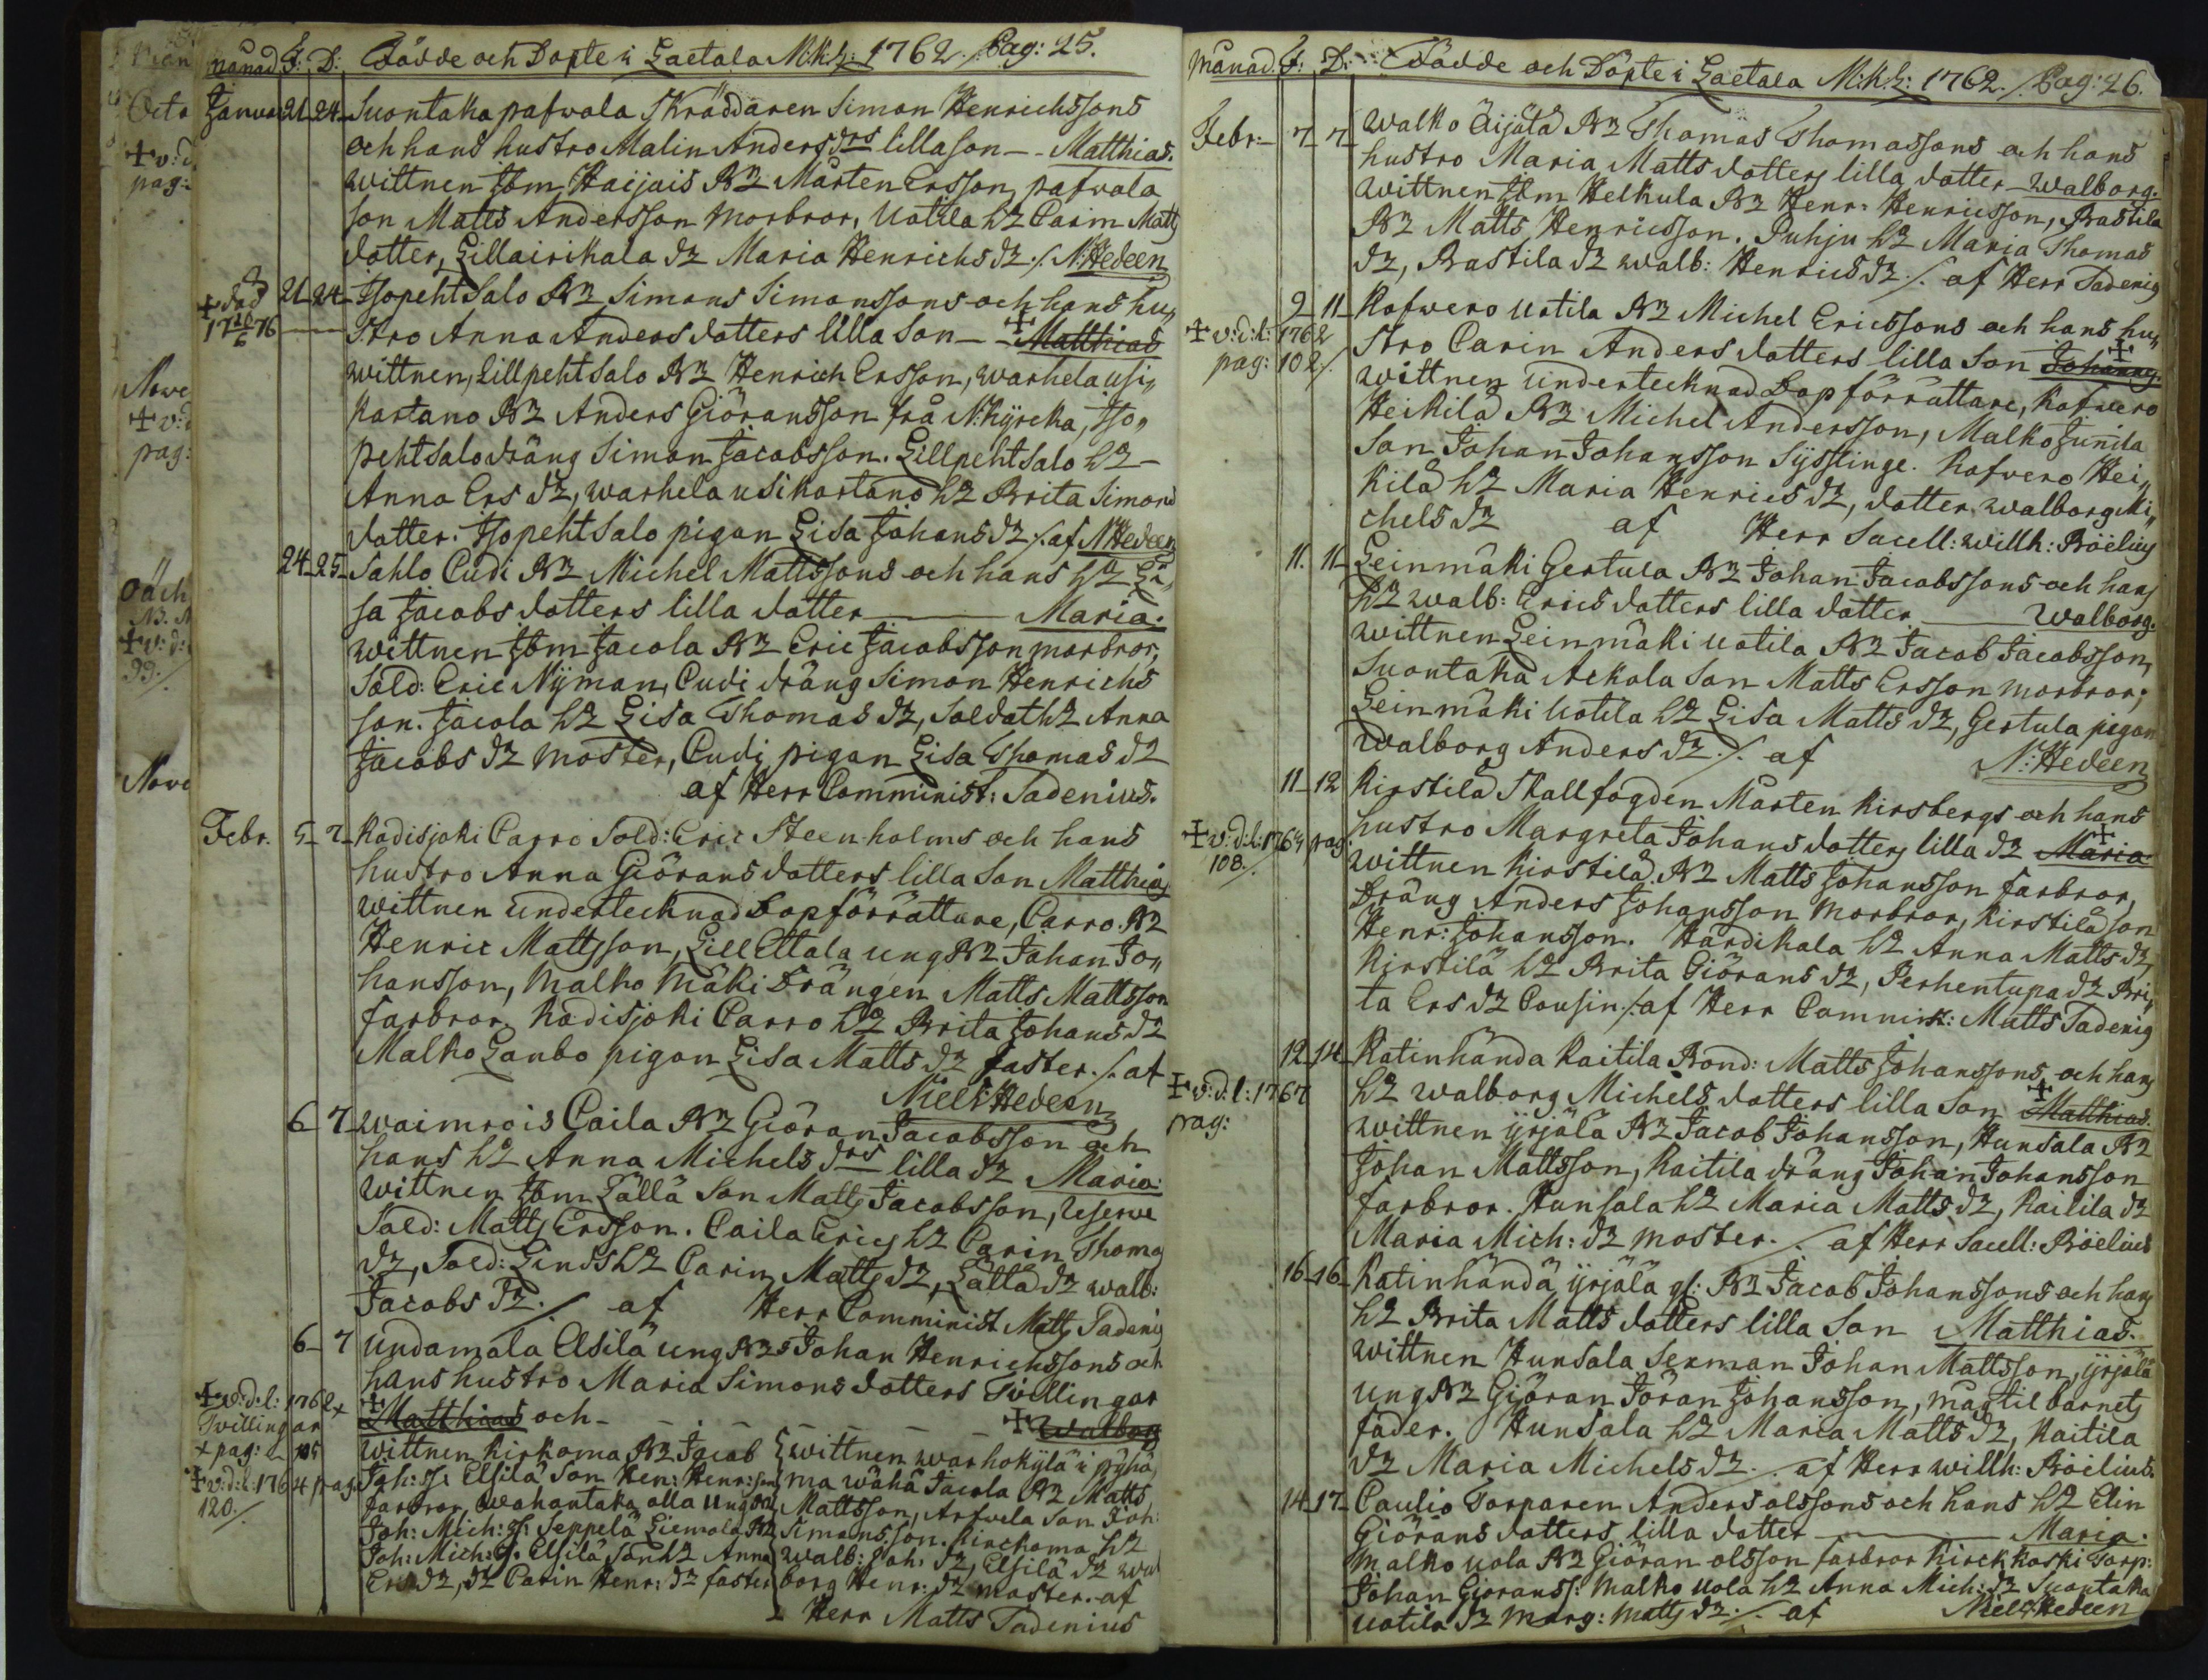 Månad F: D: Födde och Döpte i Laetala M:k:l: 1762. Pag: 25.
Janua 21 24 Suontaka pafwola Skräddaren Simon Henrichssons
och hans hustro Malin Anders drs lilla son - - Matthias.
wittnen Jbm Haijais Bd Mårten Ersson, pafwola
son Matts Andersson morbror, Uotila h2 Carin Matts
dotter, Lillairikala d2 Maria Henrichs d2 ./. N: Hedeen
+ död
17 6 76
21 24 Isopehtsalo Bd Simons Simonssons och hans hu„
stro Anna Anders dotters lilla son - + Matthias
wittnen, Lillpehtsalo Bd Henrich Ersson, warhela usi„
kartano Bd Anders Giöransson frå N:kyrcka, Iso„
pehtsalo dräng Simon Jacobsson. Lillpehtsalo h2
Anna Ers d2, warhela usikartano h2 Brita Simons
dotter. Isopehtsalo pigan Lisa Johans d2 ./. af N Hedeen
24 25 Sahlo Cudi Bd Michel Mattssons och hans h2 Li„
sa Jacobs dotters lilla dotter Maria.
wittnen Jbm Jacola Bd Eric Jacobsson morbror,
Sold: Eric Nyman, Cudi dräng Simon Henrichs
son. Jacola h2 Lisa Thomas d2, Soldat h2 Anna
Jacobs d2 moster, Cudi pigan Lisa Thomas d2
af Herr Comminist: Tadenius.
Febr. 5 7 Kodisjoki Carro Sold: Eric Steenholms och hans
hustro Anna Giörans dotters lilla son Matthias
wittnen undertecknad Dopförrättare, Carro Bd
Henric Mattsson, Lill Ettala ung Bd Johan Jo„
hansson, Malko Mäki Drängen Matts Mattsson
farbror. Kodisjoki Carro h2 Brita Johans d2
Malko Laubo pigan Lisa Matts d2 faster. ./. af
Niels Hedeen
6 7 waimrois Caila Bd Giöran Jacobsson och
hans h2 Anna Michels drs lilla d2 Maria.
wittnen Jbm Lällä Son Matts Jacobsson, Reserve
Sold: Matts Ersson. Caila Erics h2 Carin Thomas
d2, Sold: Linds h2 Carin Matts d2, Lättä d2 walb:
Jacobs d2 ./. af Herr Comminist Matts Tadenius
6 7 Undamala Elsilä ung Bds Johan Henrichssons och
hans hustro Maria Simons dotters Tvillingar
+ v:d:l: 1762 +
Tvillingar
+ pag: 105
+ Matthias och - + Walborg
+ v:d:l: 1764 pag:
120./.
wittnen Kirkoma Bd Jacob
Joh: s: Elsilä Son Hen: Henr: son
farbror, wahantaka olla ung Bd
Joh: Mich: s: Seppelä Liemola Bd
Joh: Mich: s: Elsilä Son h2 Anna
Ers d2, d2 Carin Henr: d2 faster
wittnen warhokylä i pyhä
ma wähä Jacola Bd Matts
Mattsson, Arfwela Son Joh:
Simonsson. Kirckoma h2
walb: Joh: d2, Elsilä d2 wal
borg Henr: d2 moster. af
Herr Matts Tadenius
Månad F: D: Födde och Döpte i Laetala M:k:l: 1762. ./. Pag: 26.
Febr: 7 7 walko äijälä Bd Thomas Thomassons och hans
hustro Maria Matts dotters lilla dotter - Walborg.
wittnen Jbm Helkula Bd Henr: Henricsson, Rastila
Bd Matts Henricsson. Puhju h2 Maria Thomas
d2, Rastila d2 walb: Henrics d2 ./. af Herr Tadenius
9 11 Kofwero Uotila Bd Michel Ericssons och hans hu„
+ v:d:l: 1762
pag: 102./.
stro Carin Anders dotters lilla Son + Johannes.
wittnen undertecknad Dopförrättare, Kofwero
Heikilä Bd Michel Andersson, Malko Junila
Son Johan Johansson Sysslinge. Kofwero Hei„
kilä h2 Maria Henrics d2, dotter walborg Mi„
chels d2 af Herr Sacell: Willh: Böelius
11 11 Leinmäki Gertula Bd Johan Jacobssons och hans
h2 walb: Erics dotters lilla dotter Walborg.
wittnen Leinmäki Uotila Bd Jacob Jacobsson,
Suontaka Ackola Son Matts Ersson morbror;
Leinmäki Uotila h2 Lisa Matts d2, Gertula pigan
Walborg Anders d2 ./. af N: Hedeen
11 12 Kirstilä Skallfogden Mårten Kirsbergs och hans
+ v:d:l: 1764 pag:
108./.
hustro Margreta Johans dotters lilla d2 + Maria.
wittnen Kirstilä Bd Matts Johansson farbror,
Dräng Anders Johansson morbror, Kirstilä son
Henr: Johansson. Härdikala h2 Anna Matts d2,
Kirstilä h2 Brita Giörans d2, Perhentupa d2 Bri„
ta Ers d2 Cousin ./. af Herr Commin: Matts Tadenius
12 14 Katinhända Kaitila Bond: Matts Johanssons och hans
+ v:d:l: 1767
pag:
h2 walborg Michels dotters lilla Son + Matthias.
wittnen yrjälä Bd Jacob Johansson, Hunsala Bd
Johan Mattsson, Kaitila dräng Johan Johansson
farbror. Hunsala h2 Maria Matts d2, Kaitila d2
Maria Mich: d2 moster. ./. af Herr Sacell: Böelius
16 16 Katinhändä yrjälä gl: Bd Jacob Johanssons och hans
h2 Brita Matts dotters lilla Son Matthias.
wittnen Hunsala Sexman Johan Mattsson, yrjälä
ung Bd Giöran Jöran Johansson, måg til barnets
fader. Hunsala h2 Maria Matts d2, Kaitila
d2 Maria Michels d2 ./. af Herr Willh: Böelius.
14 17 Caulio Torparen Anders olssons och hans h2 Elin
Giörans dotters lilla dotter Maria.
Malko Uola Bd Giöran olsson farbror Kirckkoski Torp:
Johan Giöranss: Malko Uola h2 Anna Mich: d2 Suontaka
Uotila d2 Marg: Matts d2 ./. af Niels Hedeen